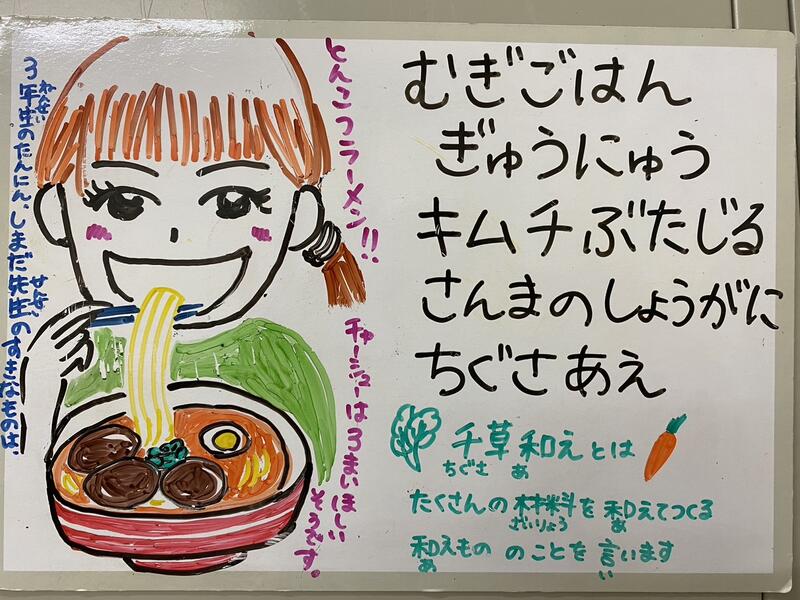 むぎごはん
ぎゅうにゅう
キムチぶたじる
さんまのしょうがに
ちぐさあえ
千草和えとは
ちぐさ あ
たくさんの材料を和えてつくる
ざいりょう あ
和えもののことを言います
あ い
とんこつラーメン!!
チャーシューは3まいほしい
そうです。
3年生のたんにん、しまだ先生のすきなものは、
ねんせい せんせい